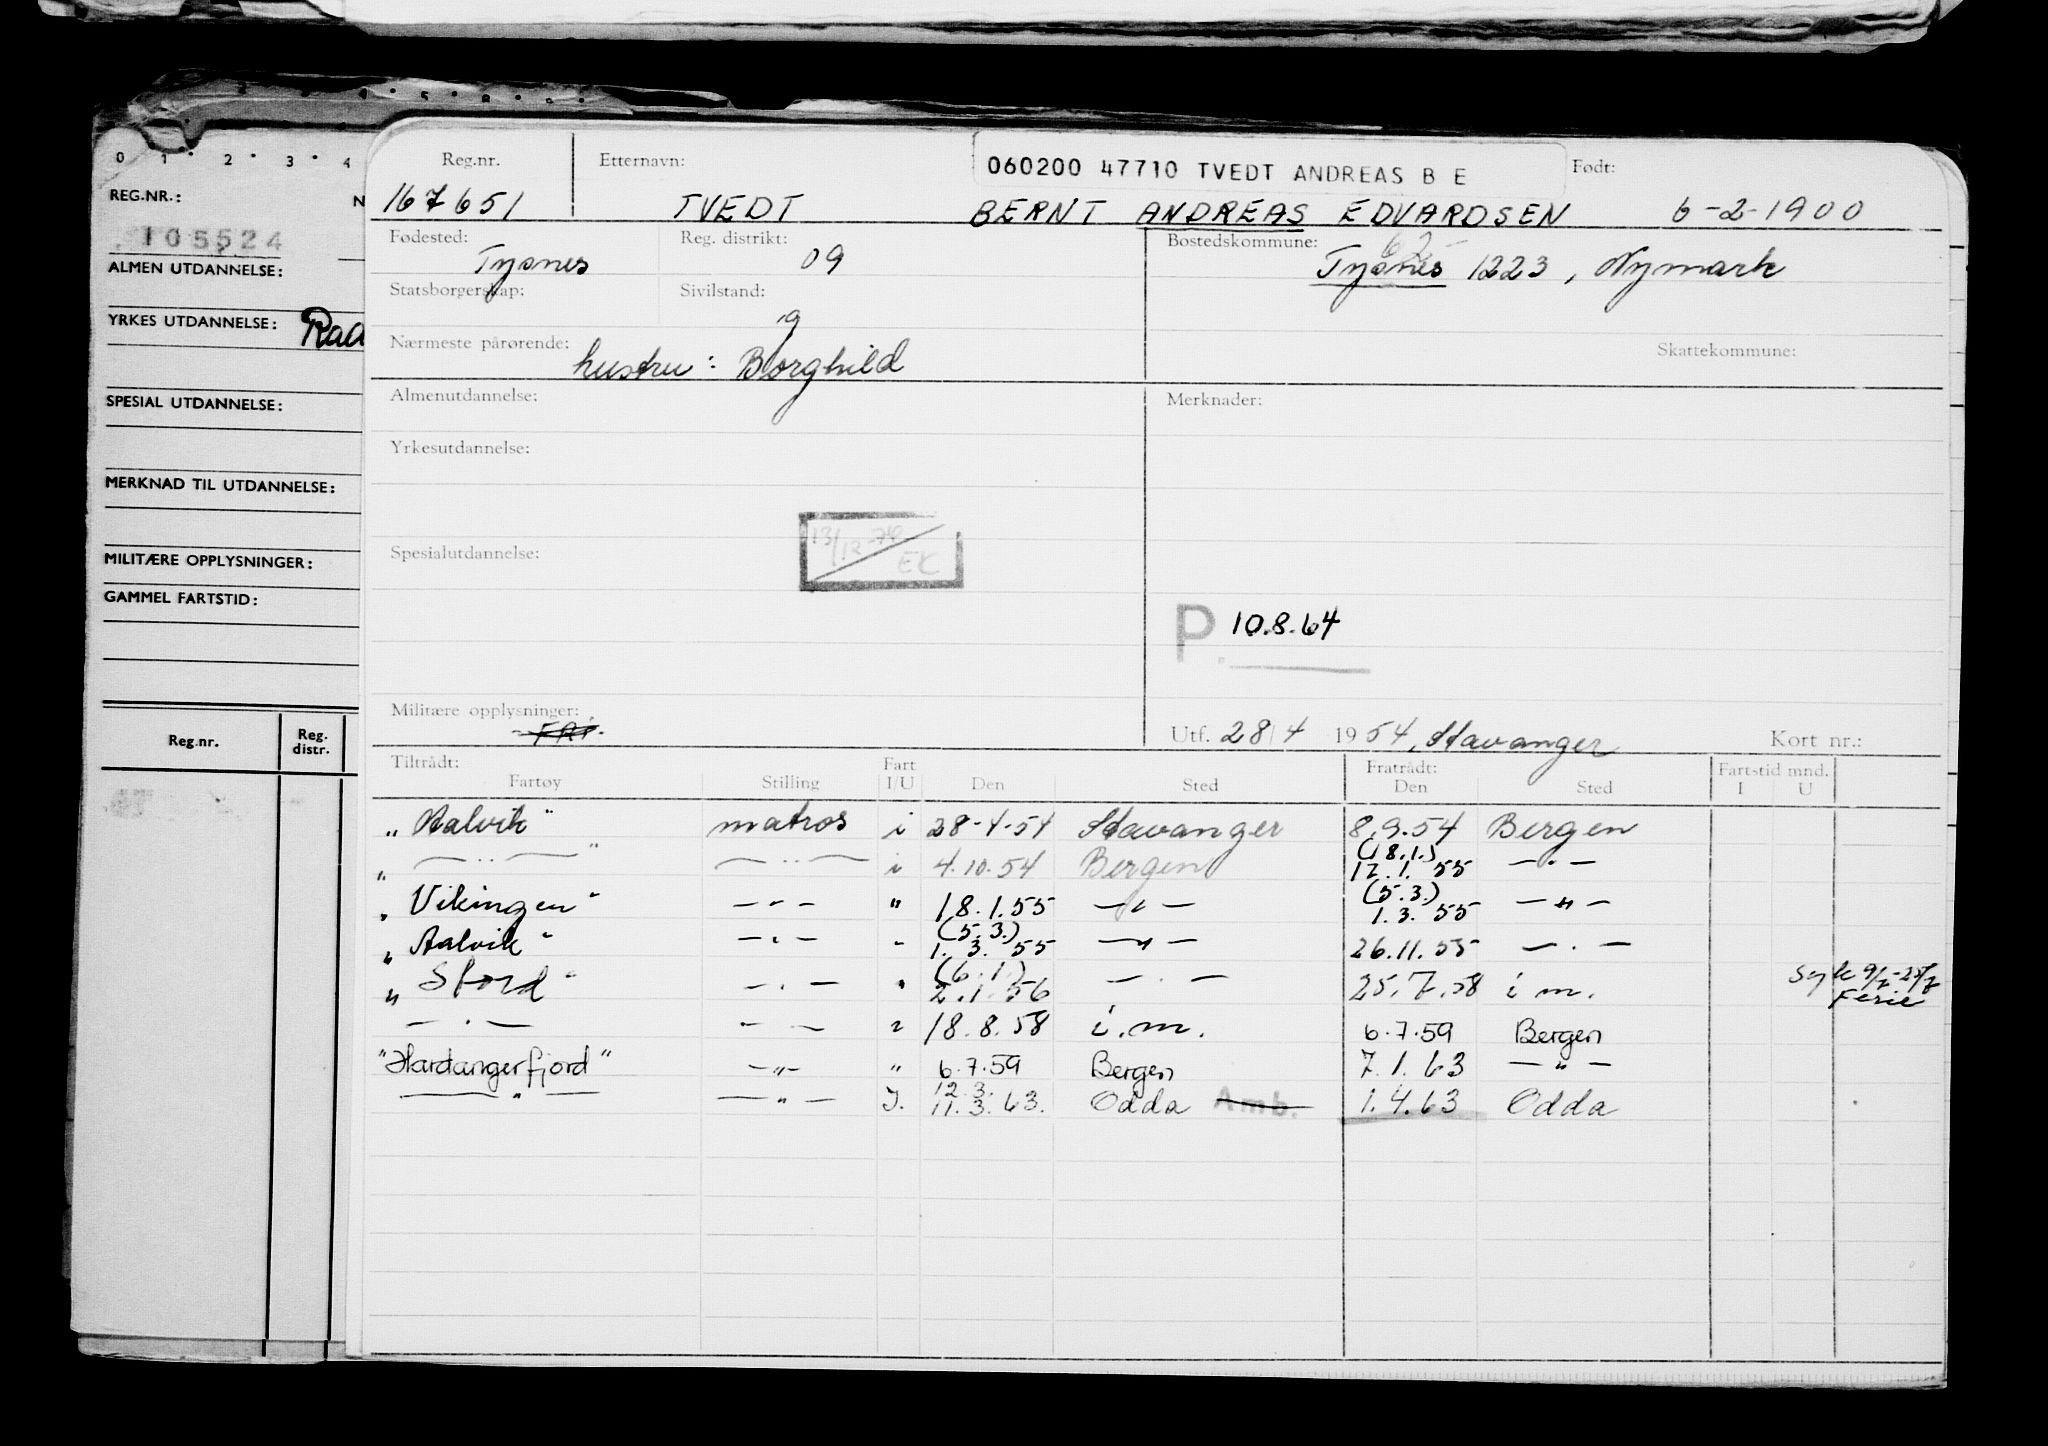 0 1 2 3 4
REG.NR.: N
105524
ALMEN UTDANNELSE:
YRKES UTDANNELSE: Rad
SPESIAL UTDANNELSE:
MERKNAD TIL UTDANNELSE:
MILITÆRE OPPLYSNINGER:
GAMMEL FARTSTID:
Reg.nr. Reg. distr.
Reg.nr. Etternavn: 060200 47710 TVEDT ANDREAS B E Født:
167651 TVEDT BERNT ANDREAS EDVARDSEN 6-2-1900
Fødested: Reg. distrikt: Bostedskommune: 62
Tysnes 09 Tysnes 1223, Nymark
Statsborgerskap: Sivilstand:
g
Nærmeste pårørende: Skattekommune:
hustru: Borghild
Almenutdannelse: Merknader:
Yrkesutdannelse:
13/12-76 EK
Spesialutdannelse:
P 10.8.64
Militære opplysninger:
FRI. Utf. 28/4 1954, Stavanger Kort nr.:
Tiltrådt: Fart Fratrådt: Fartstid mnd.
Fartøy Stilling I/U Den Sted Den Sted I U
"Aalvik" matros i 28-4-54 Stavanger 8.9.54 Bergen
(18.1.)
" — " — " — " — i 4.10.54 Bergen 17.1.55 — " —
(5.3.)
"Vikingen" — " — " 18.1.55 — " — 1.3.55 — " —
(5.3.)
"Aalvik" — " — " 1.3.55 — " — 26.11.55 — " —
(6.1.) syk 9/7-25/7
"Sford" — " — " 2.1.56 — " — 25.7.58 i m. Ferie
— " — — " — " 18.8.58 i.m. 6.7.59 Bergen
"Hardangerfjord" — " — " 6.7.59 Bergen 7.1.63 — " —
12.3.
— " — — " — I. 11.3.63. Odda Amb. 1.4.63 Odda